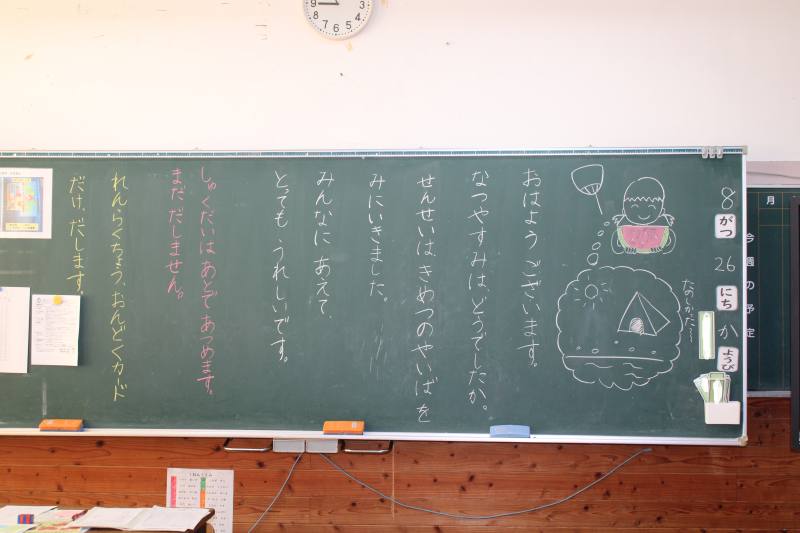 8
がつ
26
にち
か
ようび
たのしかった〜
おはようございます。
なつやすみはどうでしたか。
せんせいは、きめつのやいばを
みにいきました。
みんなにあえて、
とてもうれしいです。
しゅくだいはあとであつめます。
まだだしません。
れんらくちょう、おんどくカード
だけ、だします。
月
今週の予定